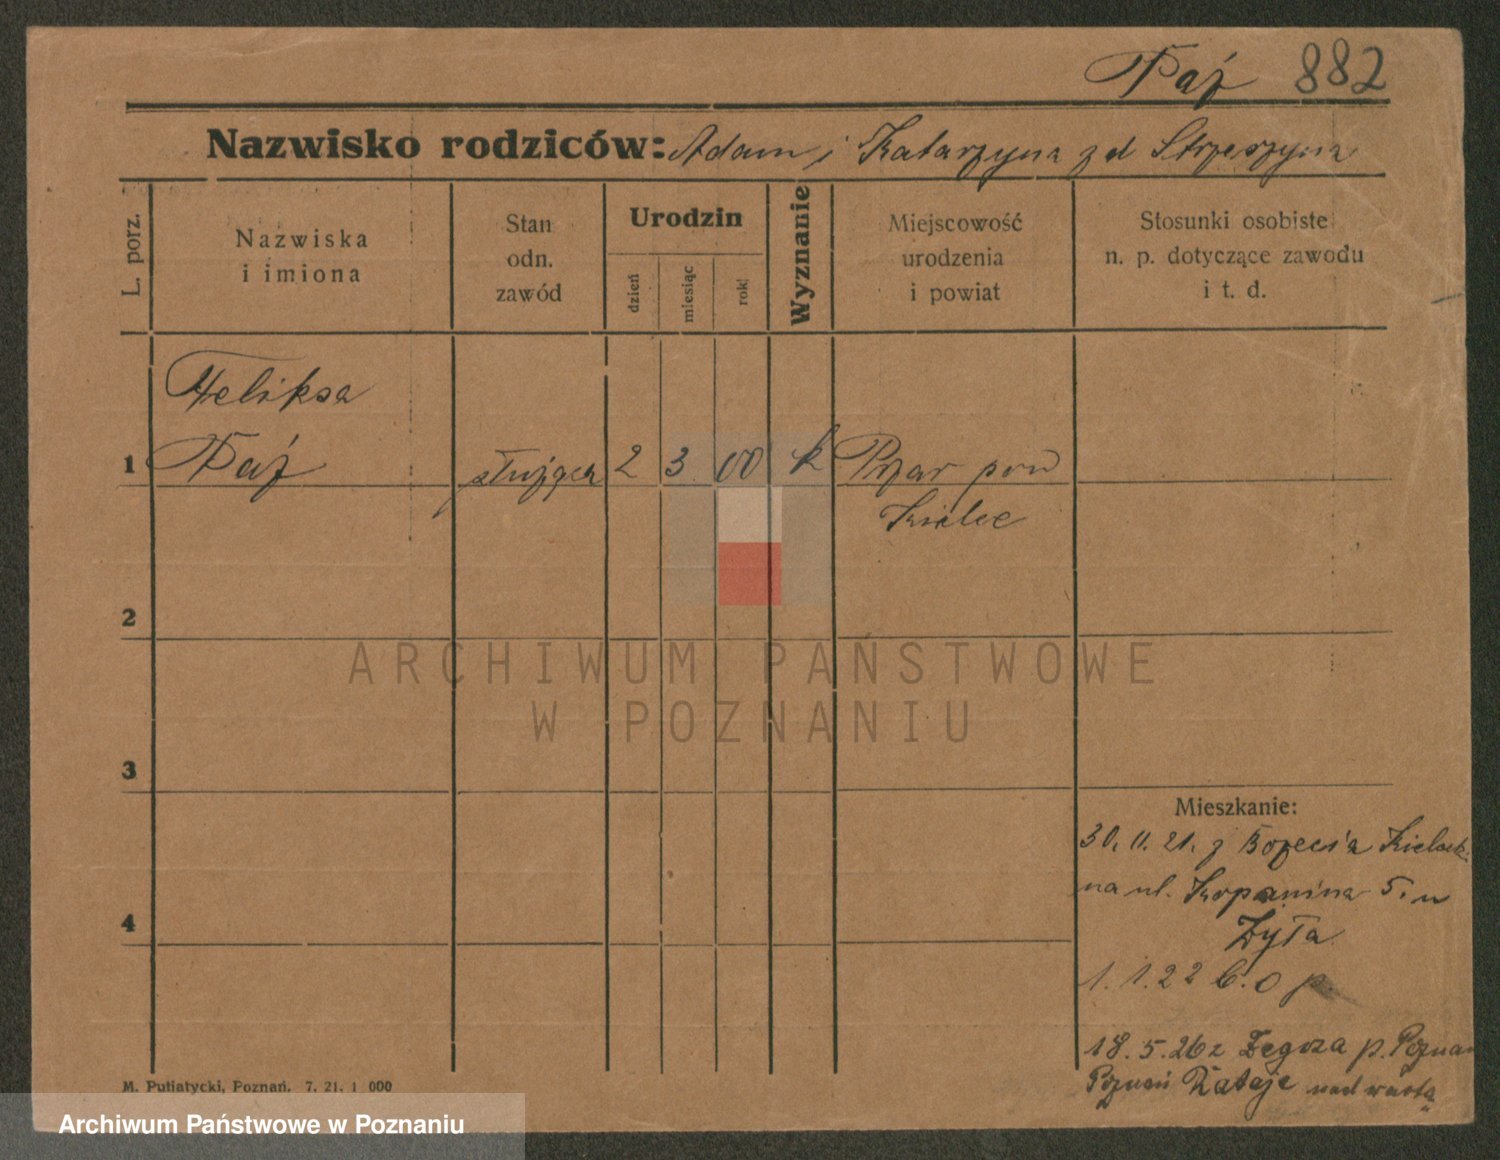 Paź 882
Nazwisko rodziców: Adam i Katarzyna z d Strzeszyna
L. porz.
Nazwiska
i imiona
Stan
odn.
zawód
Urodzin
dzień
miesiąc
rok
Wyznanie
Miejscowość
urodzenia
i powiat
Stosunki osobiste
n. p. dotyczące zawodu
i t. d.
Feliksa
1 Paź służąca 2 3 00 k pow
Kielce
2
ARCHIWUM PAŃSTWOWE
W POZNANIU
3
Mieszkanie:
30. 11. 21. z
na ul. Kopanina 5. u
Żyła
4
1. 1. 22 b. o p.
18. 5. 26 z Zegrza p. Poznań
Poznań Rataje nad wartą
M. Putiatycki, Poznań. 7. 21. 1 000
Archiwum Państwowe w Poznaniu